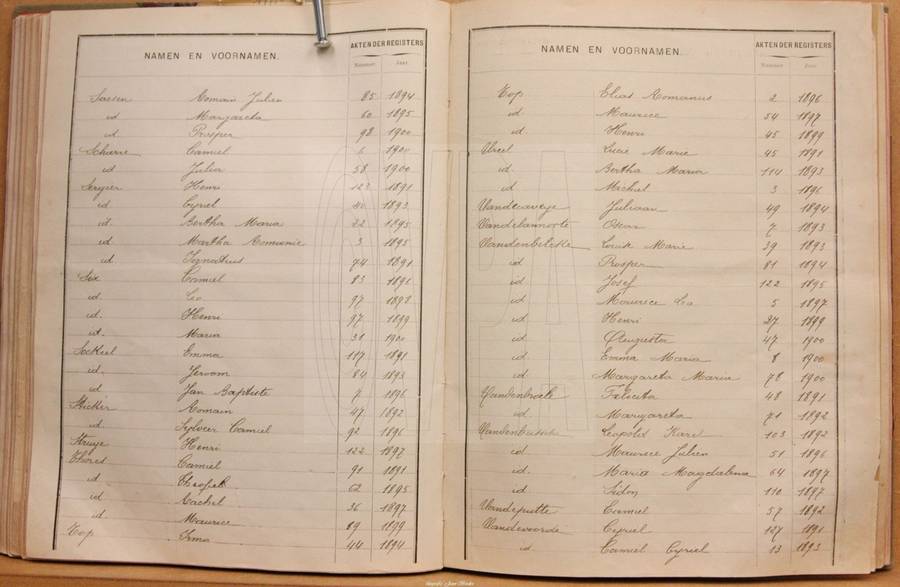 NAMEN EN VOORNAMEN. AKTEN DER REGISTERS
Nummer Jaar
Romain Julien 85 1894
id Margareta 60 1895
id Prosper 98 1900
Scharre Camiel 6 1900
id Julia 58 1900
Seryser Henri 123 1891
id Cyriel 40 1893
id Bertha Maria 22 1895
id Martha Romanie 3 1895
id Ignatius 74 1891
Six Camiel 83 1896
id Leo 97 1898
id. Henri 97 1899
id. Maria 31 1900
Emma 117 1891
id. Jeroom 84 1893
id Jan Baptiste 7 1896
Sticker Romain 47 1892
id Sylveer Camiel 92 1896
Struye Henri 122 1897
Camiel 91 1891
id Theophiel 62 1895
id Rachel 36 1897
id Maurice 89 1899
Top Irma 44 1894
NAMEN EN VOORNAMEN. AKTEN DER REGISTERS
Nummer Jaar
Top Elias Romanus 2 1896
id Maurice 54 1897
id Henri 45 1899
Ureel Lucie Marie 45 1891
id. Bertha Maria 114 1893
id Michiel 3 1896
Vandecaveye Juliaan 49 1894
Vandelannoote Oscar 7 1893
Vandenbilcke Louise Marie 39 1893
id Prosper 81 1894
id Josef 122 1895
id Maurice Leo 5 1897
id Henri 27 1899
id Augusta 47 1900
id Emma Maria 8 1900
id Margareta Maria 78 1900
Vandenbroele Felicita 48 1891
id Margareta 71 1892
Vandenbussche Leopold Karel 103 1892
id Maurice Julien 51 1896
id. Maria Magdalena 64 1897
id Sidon 110 1897
Vandeputte Camiel 57 1892
Vandevoorde Cyriel 127 1891
id Camiel Cyriel 13 1893